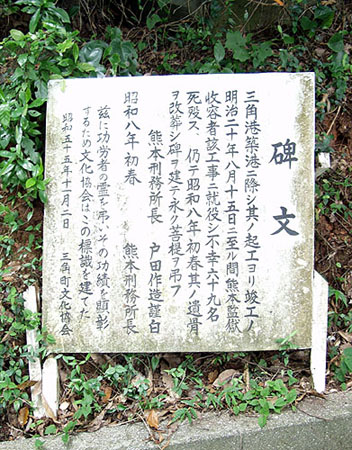 碑文
三角港築港ニ際シ其ノ起工ヨリ竣工ノ
明治二十年八月十五日ニ至ル間熊本監獄
收容者該工事ニ就役シ不幸六十九名
死歿ス 仍テ昭和八年初春其ノ遺骨
ヲ改葬シ碑ヲ建テ永ク菩提ヲ弔フ
熊本刑務所長 戸田作造謹白
昭和八年初春 熊本刑務所長
茲に功労者の霊を弔いその功績を顕彰
するため文化協会はこの標識を建てた
昭和五五年十一月二日 三角町文化協会